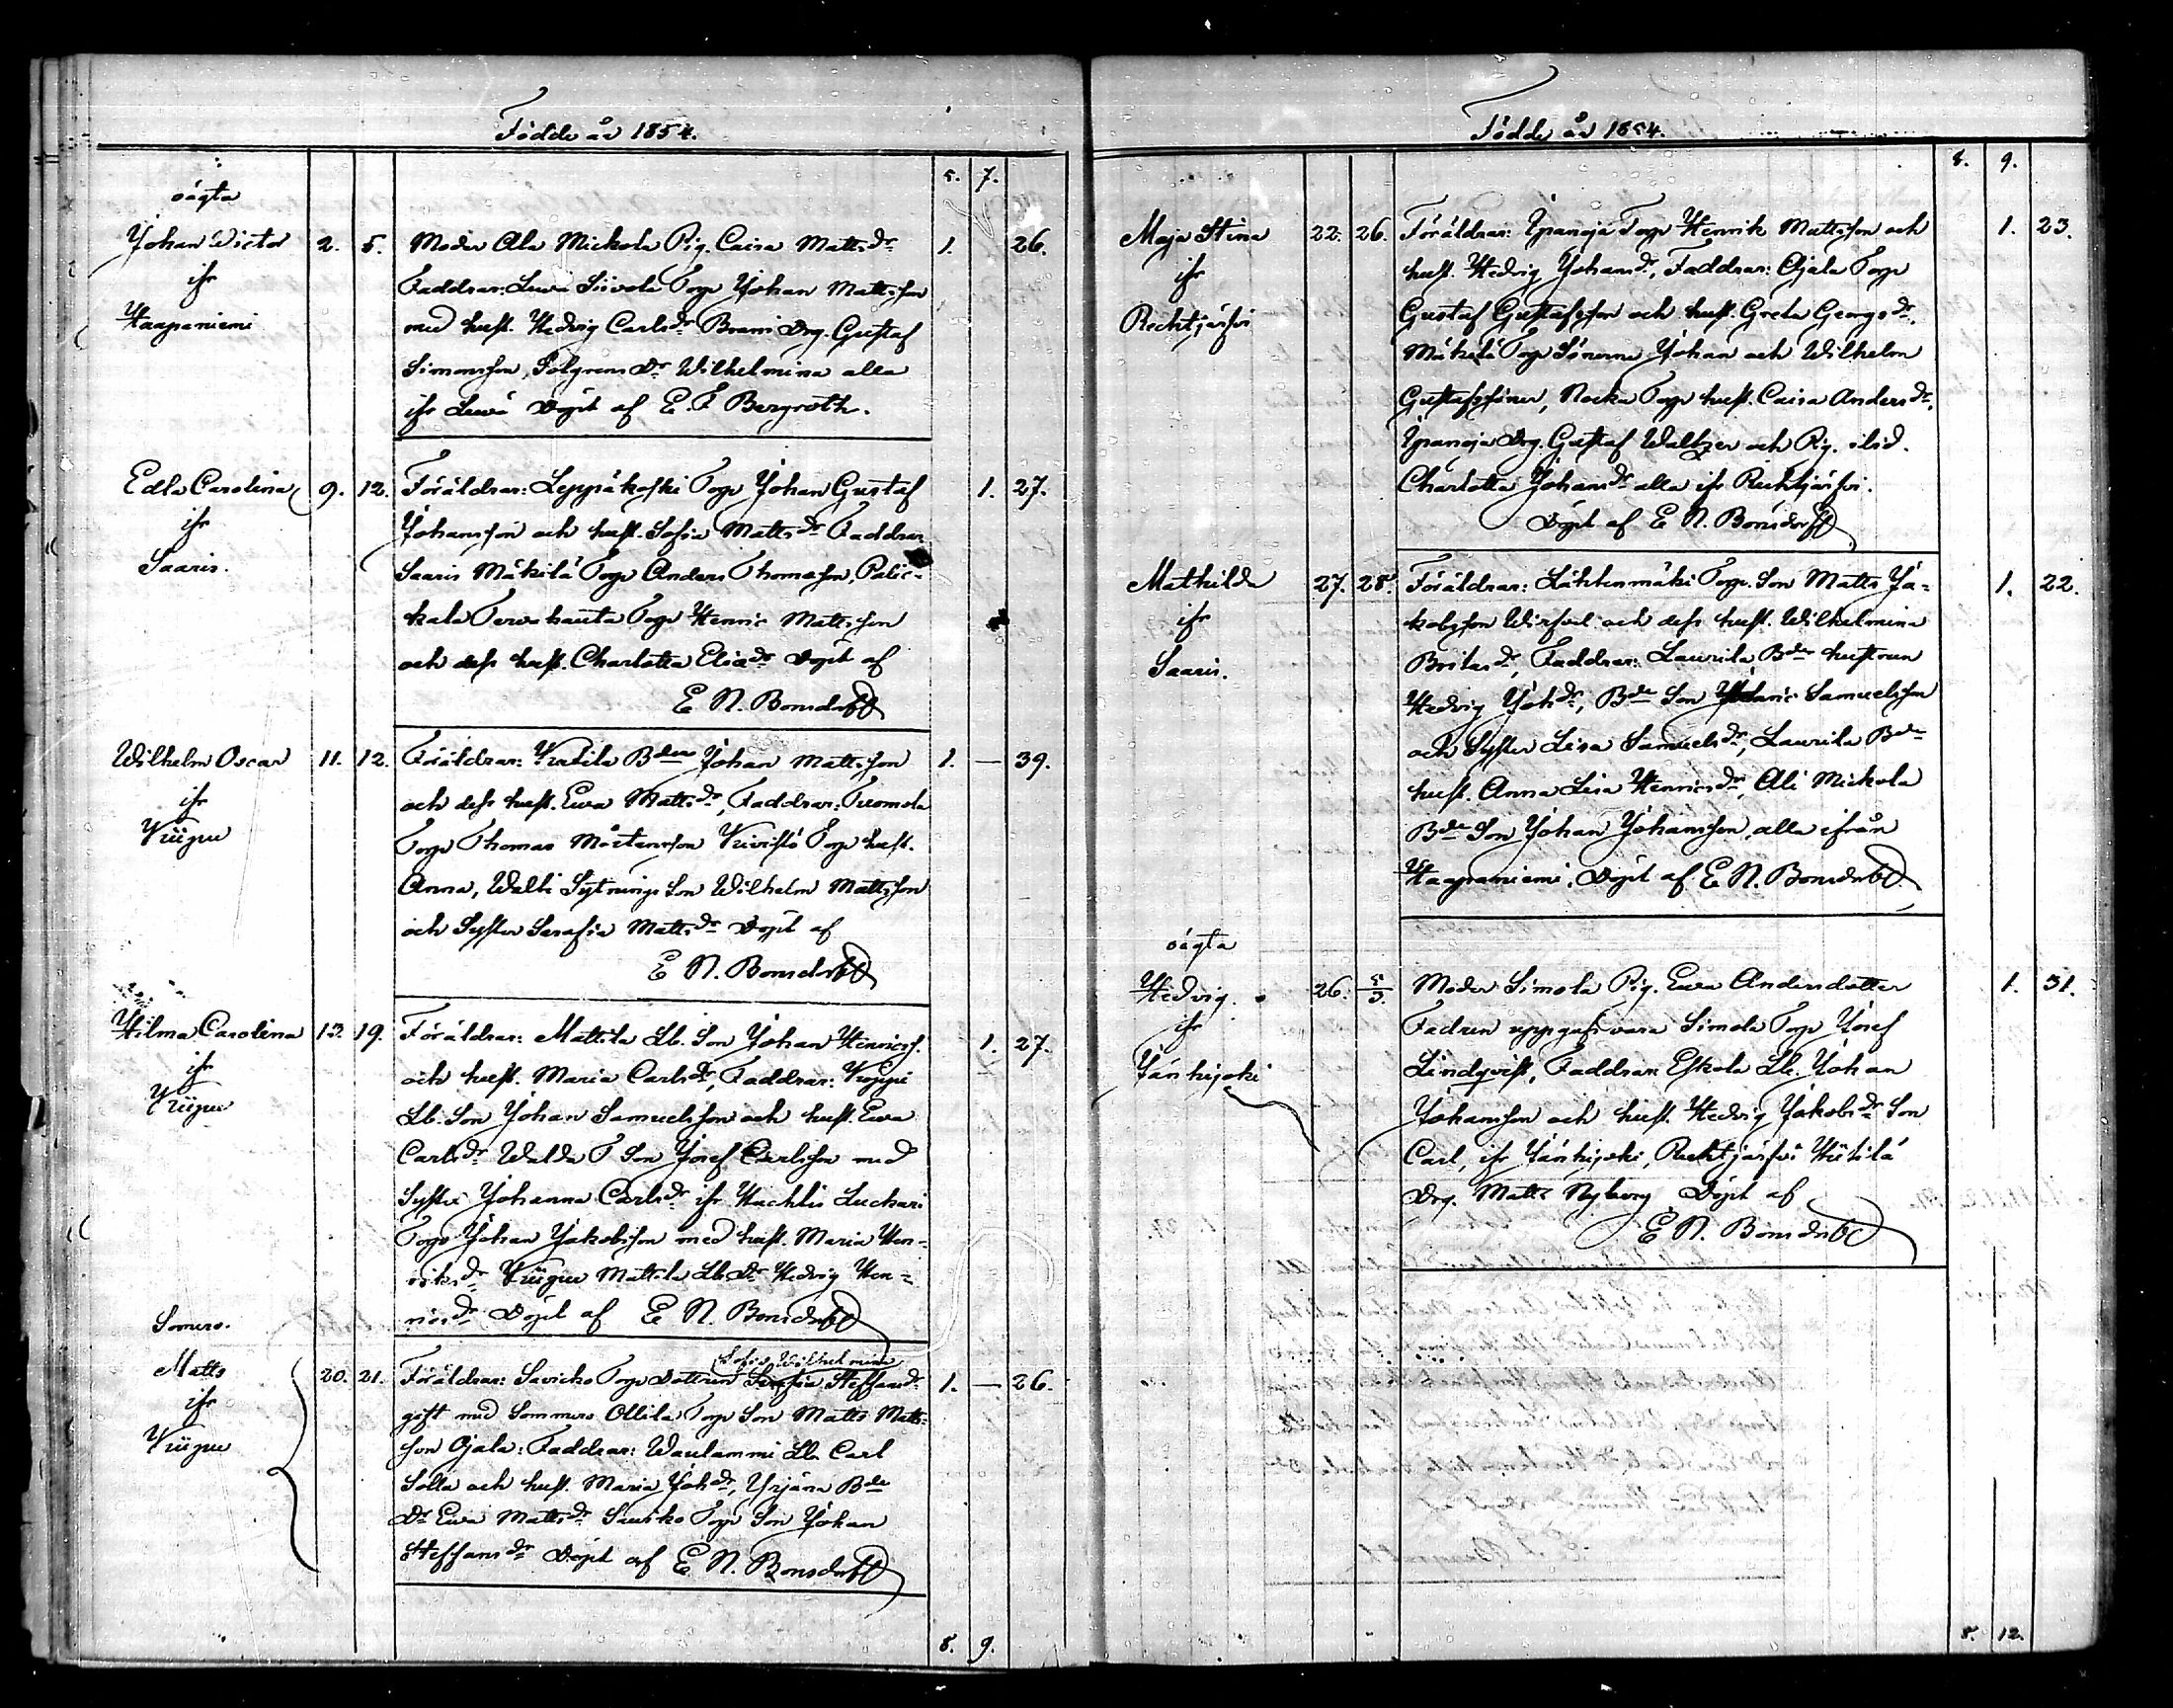 Födde år 1854.
5. 7.
oägta
Johan Victor 2. 5. Moder Ala Mickola Pig. Caisa Matts dr 1. 26.
ifr Faddrar: Torp Johan Mattsson
Haapaniemi med hust. Hedvig Carls dr Drg. Gustaf
Simonsson, Dr Wilhelmina alla
ifr Döpt af E. F. Bergroth.
Edla Carolina 9. 12. Föräldrar: Leppäkoski Torp Johan Gustaf 1. 27.
ifr Johansson och hust. Sofia Matts dr Faddrar
Saaris. Saaris Mäkilä Torp Anders Thomasson, Palic-
kala Torp Henric Mattsson
och dess hust. Charlotta Elias dr Döpt af
E N. Bonsdorff
Wilhelm Oscar 11. 12. Föräldrar: Bde Johan Mattsson 1. — 39.
ifr och dess hust. Ewa Matts dr, Faddrar: Tuomola
Torp Thomas Mårtensson Kivistö Torp hust.
Anna, Sytnings Son Wilhelm Mattsson
och Syster Serafia Matts dr Döpt af
E N. Bonsdorff
Hilma Carolina 13. 19. Föräldrar: Mattila Lb. Son Johan Henricss. 1. 27.
ifr och hust. Maria Carls dr, Faddrar:
Lb. Son Johan Samuelsson och hust. Ewa
Carls dr T Son Josef Carlsson med
Syster Johanna Carls dr ifr
Torp Johan Jakobsson med hust. Maria Hen-
riks dr Mattila Lb. Dr Hedvig Hen-
rics dr Döpt af E N. Bonsdorff
Somero.
Sofia Wilhelmina
Matts 20. 21. Föräldrar: Torp Dottren Steffans dr 1. — 26.
ifr gift med Sommero Ollila Torp Son Matts Matts-
son Ojala: Faddrar: Lb. Carl
och hust. Maria Joh dr, Yrjänä Bde
Dr Ewa Matts dr Torp Son Johan
Steffans dr Döpt af E N. Bonsdorff
8. 9.
Födde år 1854.
8. 9.
Maja Stina 22. 26. Föräldrar: Ypanoja Torp Henrik Mattsson och 1. 23.
ifr hust. Hedvig Johans dr, Faddrar: Ojala Torp
Rechtjärfvi Gustaf Gustafsson och hust. Greta Georgs dr,
Mäkelä Torp Sönerna Johan och Wilhelm
Gustafssöner, Torp hust. Caisa Anders dr,
Ypanoja Drg. Gustaf och Pig.
Charlotta Johans dr alla ifr Rechtjärfvi.
Döpt af E N. Bonsdorff
Mathilda 27. 28. Föräldrar: Lähteenmäki Torp. Son Matts Ja- 1. 22.
ifr kobsson och dess hust. Wilhelmina
Saaris. Britas dr, Faddrar: Laurila Bde hustrun
Hedvig Joh dr, Bde Son Samuelsson
och Syster Lisa Samuels dr, Laurila Bde
hust. Anna Lisa Henrics dr, Ali Mickola
Bde Son Johan Johansson, alla ifrån
Haapaniemi. Döpt af E N. Bonsdorff
oägta
Hedvig. 26. 5/3. Moder Simola Pig. Ewa Andersdotter 1. 31.
ifr Fadren uppgifs vara Simola Torp Josef
Jänhijoki Lindqvist, Faddrar: Eskola Lb. Johan
Johansson och hust. Hedvig Jakobs dr Son
Carl, ifr Jänhijoki, Rechtjärfvi
Drg. Matts Nyberg Döpt af
E N. Bonsdorff
8. 12.